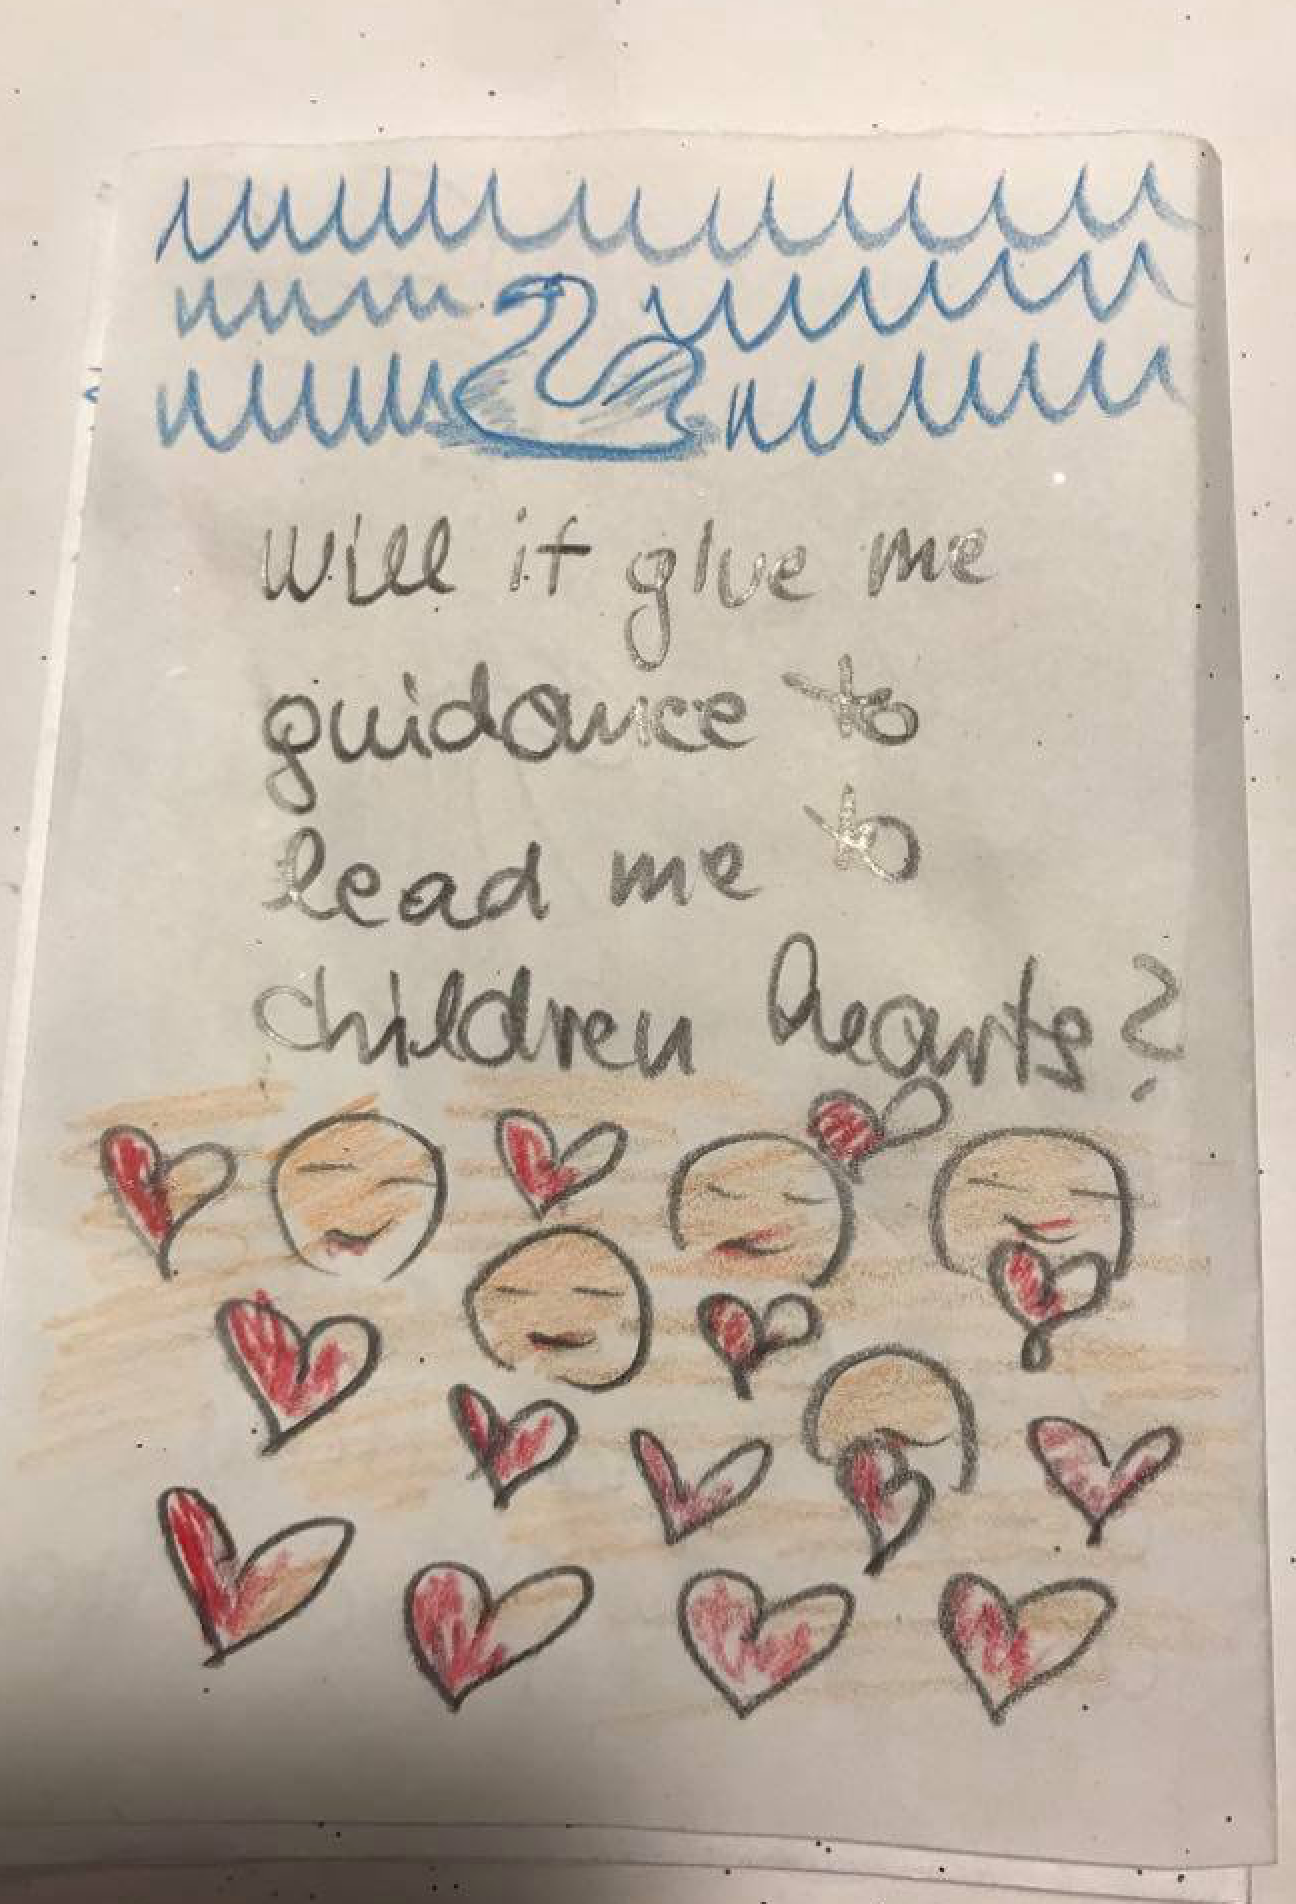 Will it give me
guidance to
lead me to
children hearts?